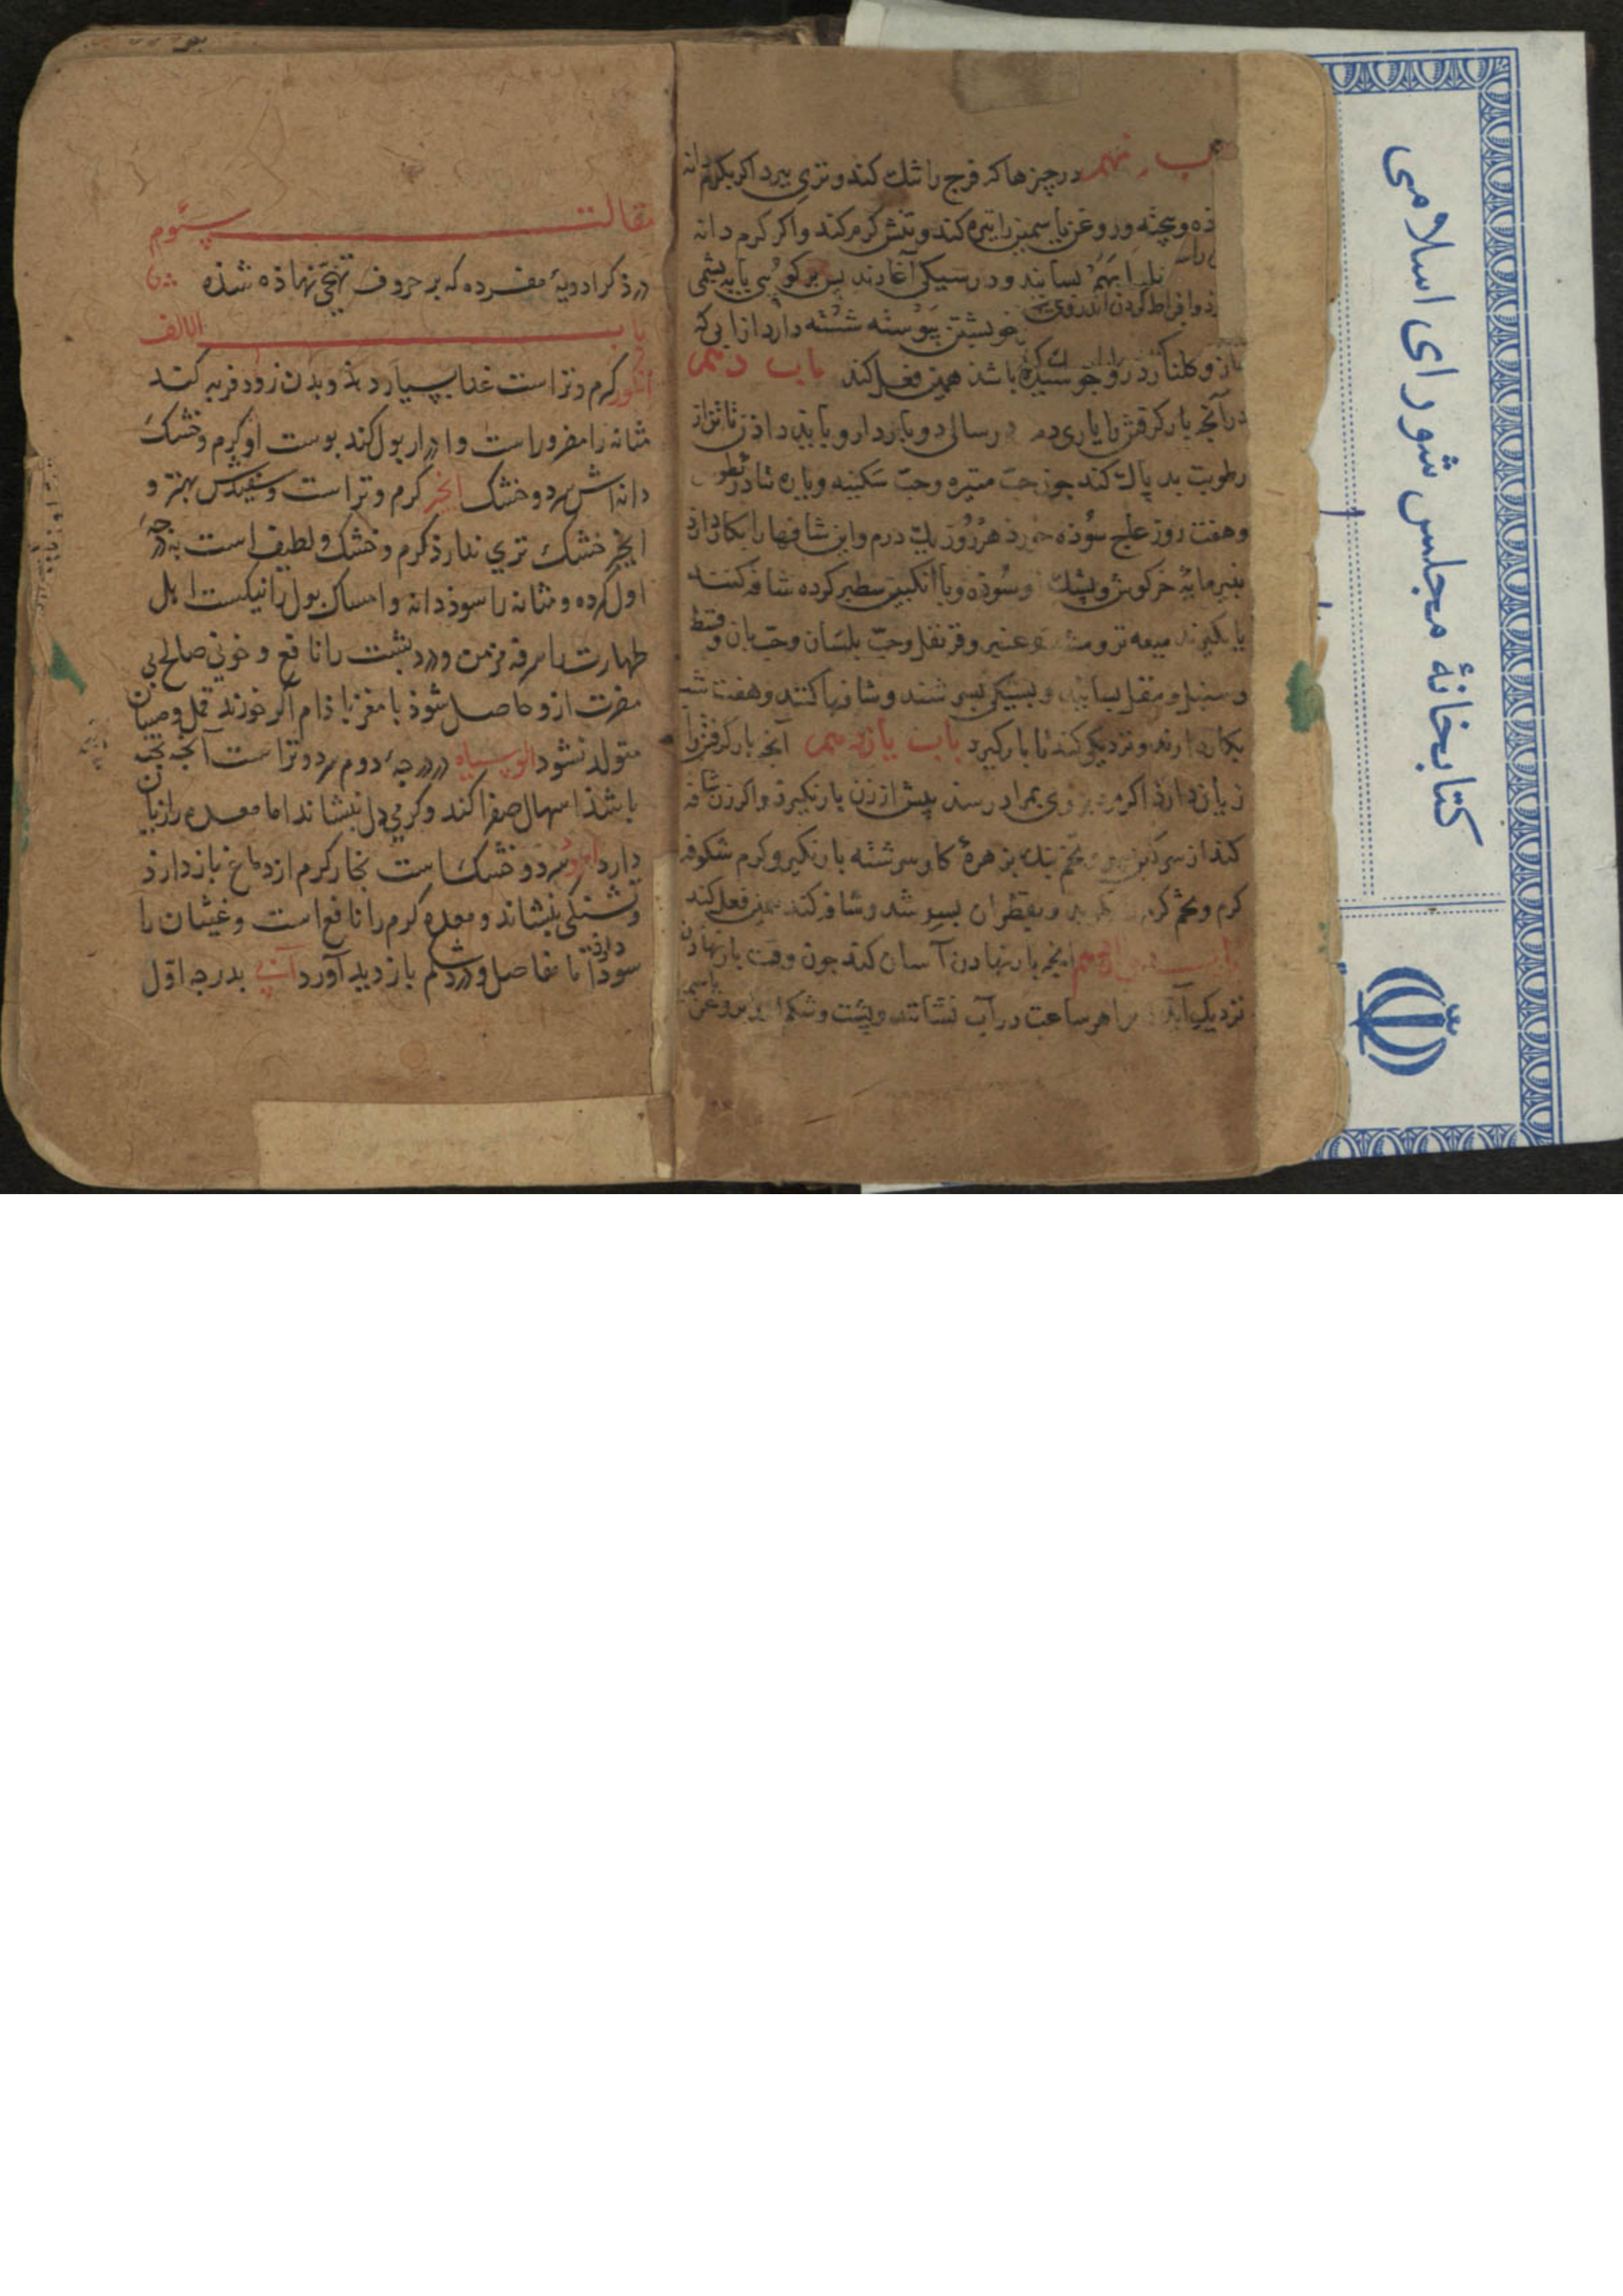 باب نهم در چیزها که فرج را تنک کند و تری ببرد اکر بکیرند
ذه و بیخته و روغن یاسمین را تیره کند و تنش کرم کند و اکر کرم دانه
بسایند و در سیکی آغارند بس برکویی یا پشمی
ذ و افراط کردن اندر وی
خویشتن پیوسته شسته دارد از آبی که
مازو و کلنار در او جوشیده باشد همین فعل کند باب دهم
در آنچه بارکرفتن را یاری دهد در سالی دو بار دارو باید داذن تا تن از
رطوبت بد پاک کند جون حب منتنه و حب سکبینه و یاره
و هفت روز عاج سوده خورد هر روز یک درم و این شافها را بکار دارذ
پنیرمایه خرکوش و پشک او سوده و با انکبین سطبر کرده شافه کنند
یا بکیرند میعه تر و مشک و عنبر و قرنفل و حب بلسان و حب بان و قسط
و سنبل و مقل بسایند و بسیکی بسرشند و شافها کنند و هفت شب
بکار دارند و نزدیکی کند تا بار کیرد باب یازدهم آنچه بار کرفتن را
زیان دارذ اکر مرد بمراد رسد پیش از زن بار نکیرد و اکر زن شافه
کند از سرکین و تخم بزهرۀ کاو سرشته بار نکیرد و کرم شکوفه
کرم و تخم کرم و بقطران بسرشد و شافه کند همین فعل کند
باب دوازدهم آنچه بار نهادن آسان کند جون وقت بار نهادن
نزدیک آید هر ساعت در آب نشانند و پشت و شکم بروغن یاسمین
مقالت سوم
در ذکر ادویۀ مفرده که بر حروف تهجی نهاذه شذه
باب الالف
انکور کرم و تر است غذا بسیار دهذ و بدن زود فربه کند
مثانه را مضر و راست و ادرار بول کند بوست او کرم و خشک
دانه اش سرد و خشک انجیر کرم و تر است و سفیدش بهتر و
انجیر خشک تری ندارذ کرم و خشک و لطیف است بدرجۀ
اول کرده و مثانه را سوذ دانه و امساک بول را نیکست اهل
طهارت را سرفه مزمن و درد پشت را نافع و خونی صالح بی
مضرت ازو حاصل شوذ با مغز باذام اکر خورند قمل و صیبان
متولد نشود الوسیاه در درجۀ دوم سرد و تر است آنچه پخته
باشذ اسهال صفرا کند و کرمی دل بنشاند اما معده را زیان
دارد امرود سرد و خشک است بخار کرم از دماغ باز دارذ
و تشنکی بنشاند و معده کرم را نافع است و غثیان را
سود دارد اما مفاصل و درد شکم بازدید آورد آبی بدرجه اول
کتابخانۀ مجلس شورای اسلامی